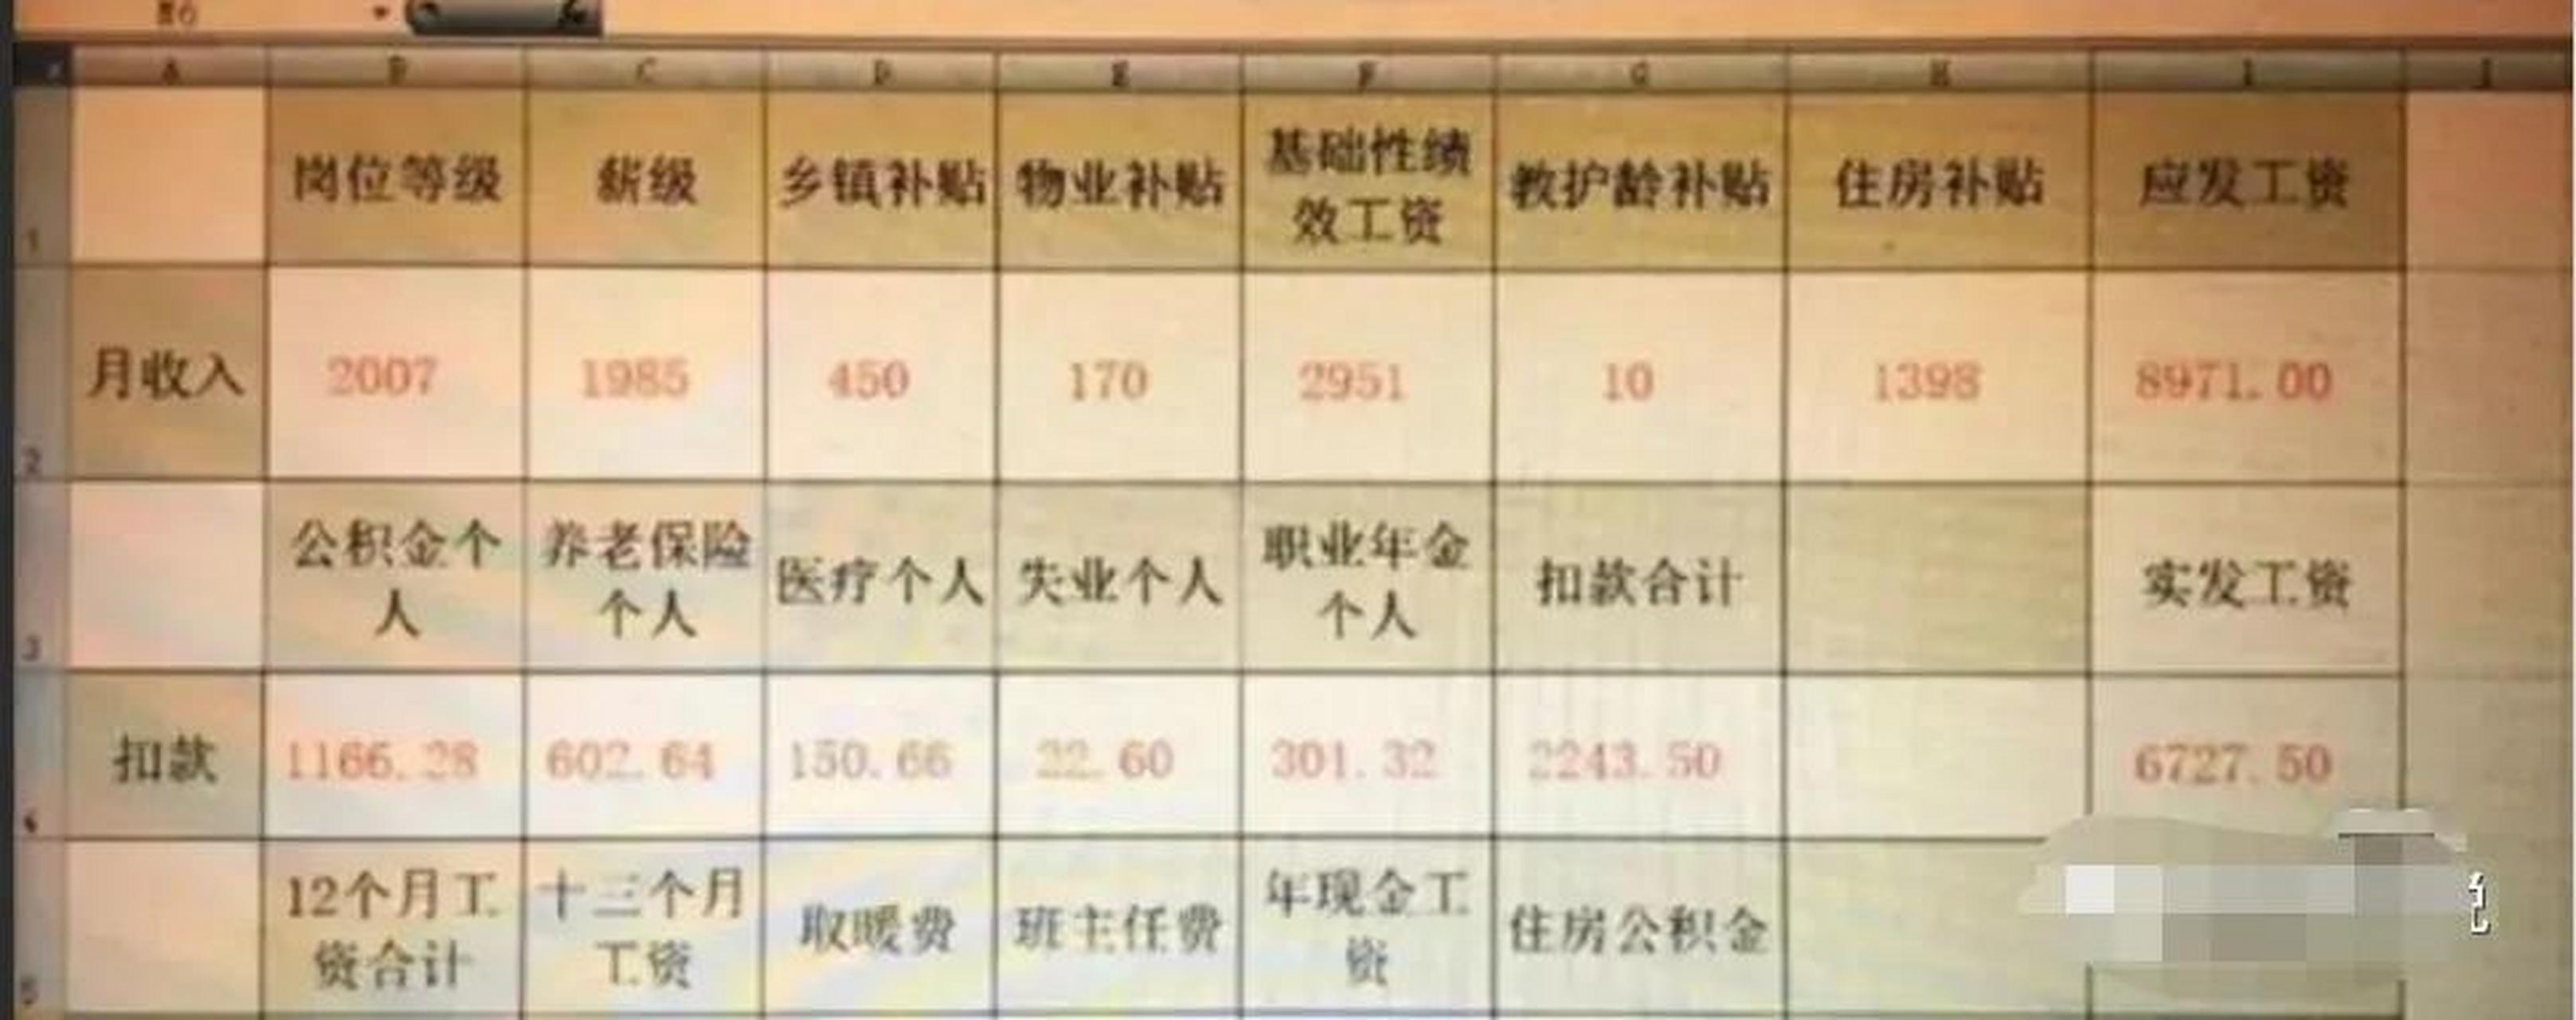 岗位等级 薪级 乡镇补贴 物业补贴 基础性绩效工资 教护龄补贴 住房补贴 应发工资
月收入 2007 1985 450 170 2951 10 1398 8971.00
公积金个人 养老保险个人 医疗个人 失业个人 职业年金个人 扣款合计 实发工资
扣款 1166.28 602.64 150.66 22.60 301.32 2243.50 6727.50
12个月工资合计 十三个月工资 取暖费 班主任费 年现金工资 住房公积金